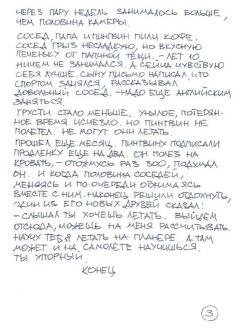 ЧЕРЕЗ ПАРУ НЕДЕЛЬ ЗАНИМАЛОСЬ БОЛЬШЕ,
ЧЕМ ПОЛОВИНА КАМЕРЫ.
СОСЕД, ПАПА И ПИНГВИН ПИЛИ КОФЕ.
СОСЕД ГРЫЗ НЕСЛАДКУЮ, НО ВКУСНУЮ
ПЕЧЕНЬКУ ОТ ПАПИНОЙ ТЁЩИ. – ЛЕТ 10
НИЧЕМ НЕ ЗАНИМАЛСЯ. А СЕЙЧАС ЧУВСТВУЮ
СЕБЯ ЛУЧШЕ. СЫНУ ПИСЬМО НАПИСАЛ, ЧТО
СПОРТОМ ЗАНЯЛСЯ, РАССКАЗЫВАЛ
ДОВОЛЬНЫЙ СОСЕД. – НАДО ЕЩЕ АНГЛИЙСКИМ
ЗАНЯТЬСЯ.
ГРУСТИ СТАЛО МЕНЬШЕ. УНЫЛОЕ, ПОТЕРЯН-
НОЕ ВРЕМЯ ИСЧЕЗЛО. НО ПИНГВИН НЕ
ПОЛЕТЕЛ. НЕ МОГУТ ОНИ ЛЕТАТЬ.
ПРОШЕЛ ЕЩЕ МЕСЯЦ. ПИНГВИНУ ПОДПИСАЛИ
ПРОДЛЕНКУ ЕЩЕ НА ДВА. ОН ПОЛЕЗ НА
КРОВАТЬ, – ОТОЖМУСЬ РАЗ 300, ПОДУМАЛ
ОН. И КОГДА ПОЛОВИНА СОСЕДЕЙ,
МЕНЯЯСЬ И ПО ОЧЕРЕДИ ОТЖИМАЯСЬ
ВМЕСТЕ С НИМ, НАКОНЕЦ РЕШИЛИ ОТДОХНУТЬ,
ОДИН ИЗ ЕГО НОВЫХ ДРУЗЕЙ СКАЗАЛ:
– СЛЫШАЛ ТЫ ХОЧЕШЬ ЛЕТАТЬ. ВЫЙДЕМ
ОТСЮДА, МОЖЕШЬ НА МЕНЯ РАССЧИТЫВАТЬ.
НАУЧУ ТЕБЯ ЛЕТАТЬ НА ПЛАНЕРЕ. А ТАМ
МОЖЕТ И НА САМОЛЕТЕ НАУЧИШЬСЯ.
ТЫ УПОРНЫЙ.
КОНЕЦ
3